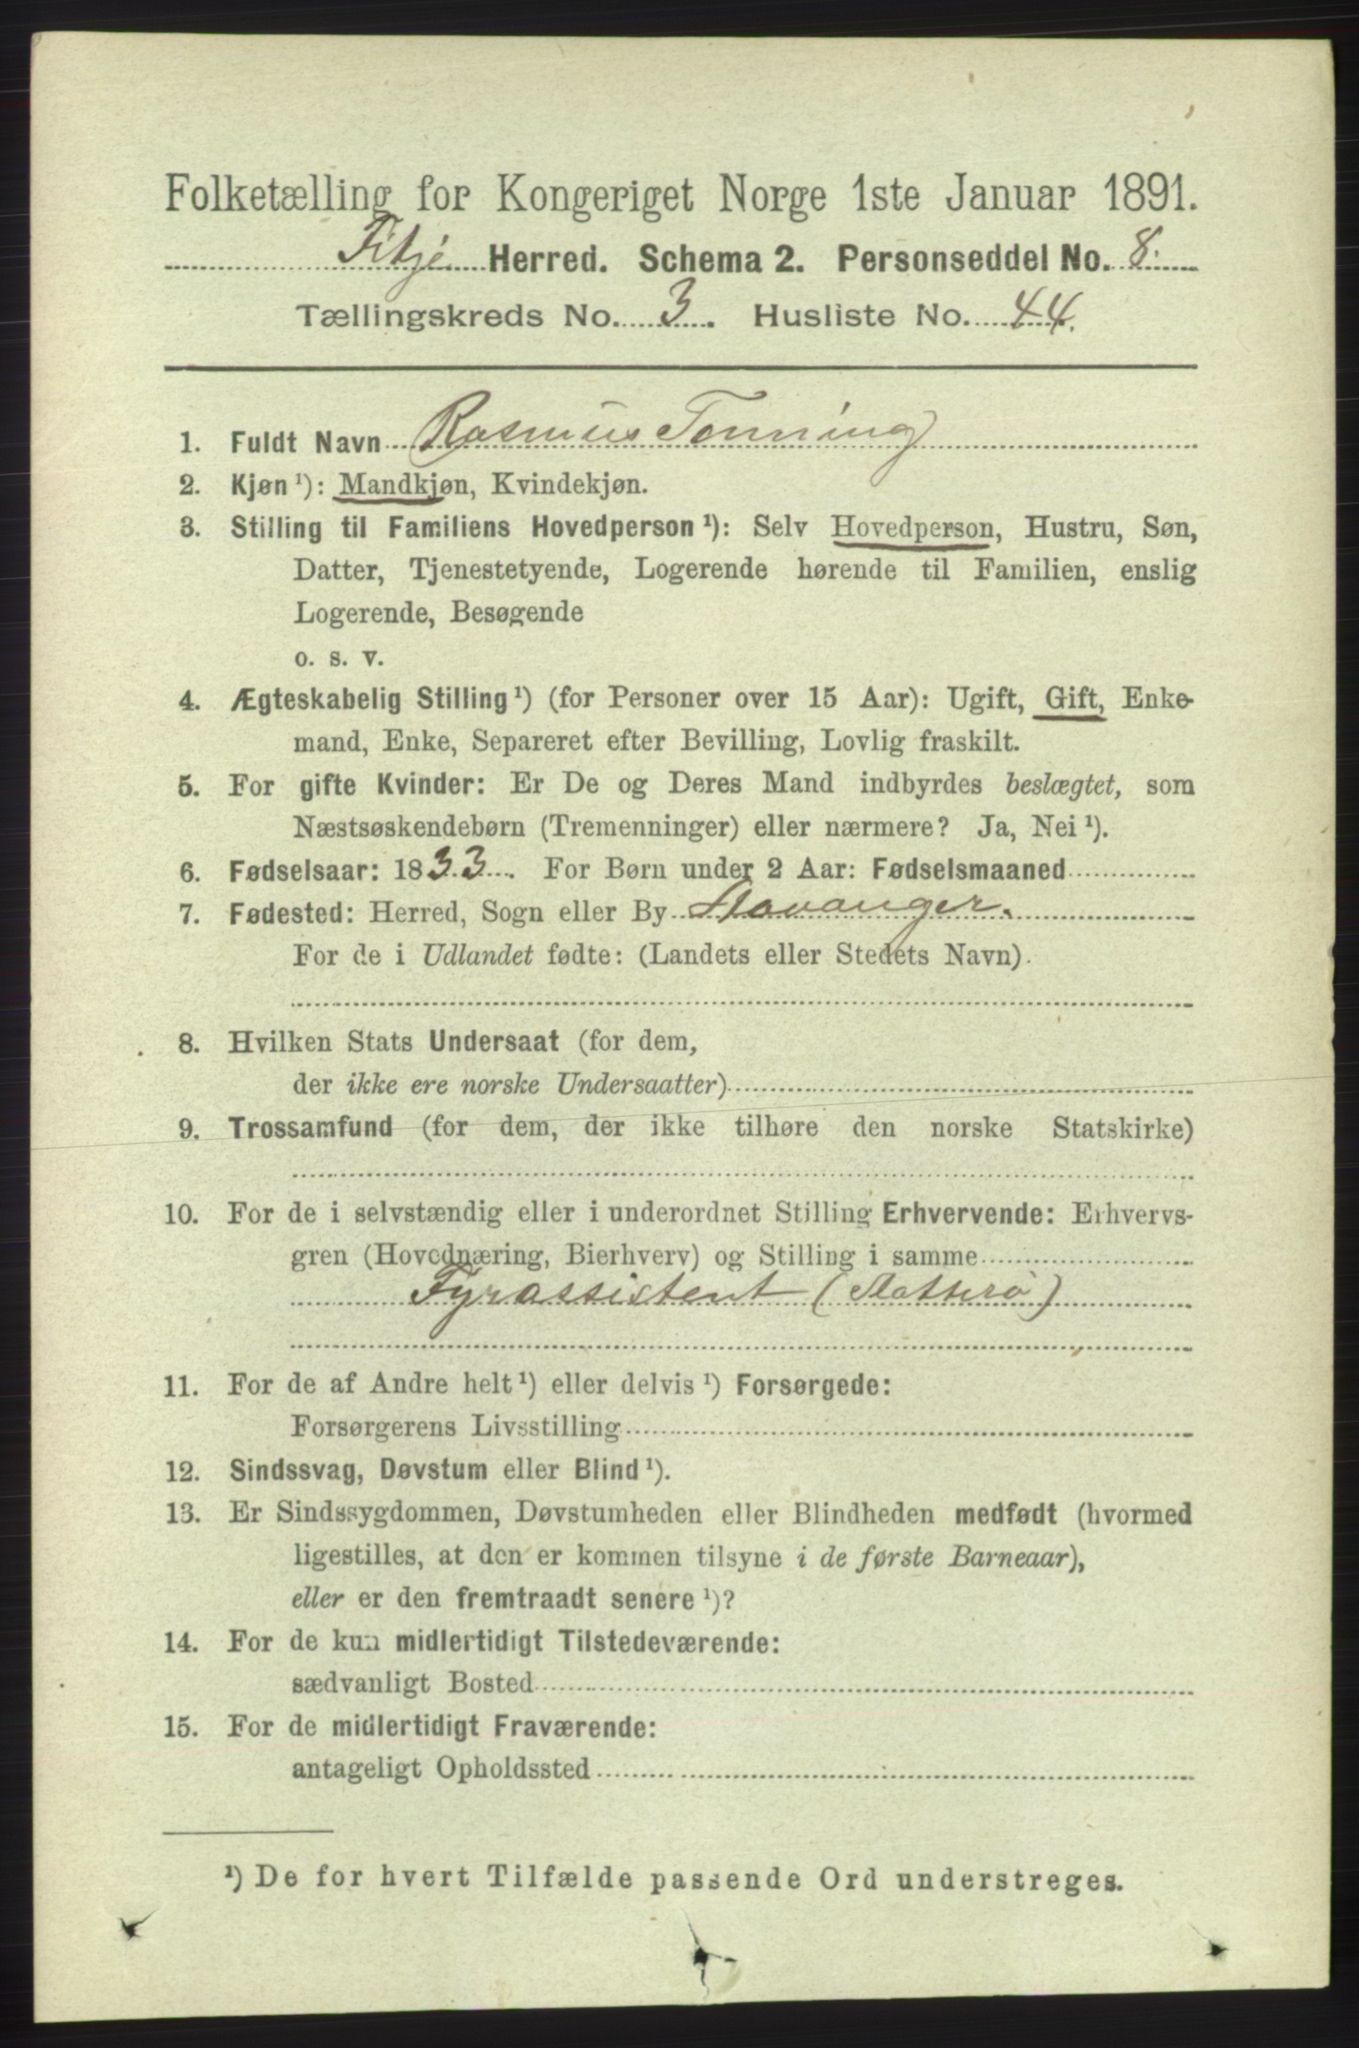 Folketælling for Kongeriget Norge 1ste Januar 1891.
Fitje Herred. Schema 2. Personseddel No. 8.
Tællingskreds No. 3. Husliste No. 44.
1. Fuldt Navn Rasmus Tonning
2. Kjøn ¹): Mandkjøn, Kvindekjøn.
3. Stilling til Familiens Hovedperson ¹): Selv Hovedperson, Hustru, Søn,
Datter, Tjenestetyende, Logerende hørende til Familien, enslig
Logerende, Besøgende
o. s. v.
4. Ægteskabelig Stilling ¹) (for Personer over 15 Aar): Ugift, Gift, Enke-
mand, Enke, Separeret efter Bevilling, Lovlig fraskilt.
5. For gifte Kvinder: Er De og Deres Mand indbyrdes beslægtet, som
Næstsøskendebørn (Tremenninger) eller nærmere? Ja, Nei ¹).
6. Fødselsaar: 1833. For Børn under 2 Aar: Fødselsmaaned
7. Fødested: Herred, Sogn eller By Stavanger.
For de i Udlandet fødte: (Landets eller Stedets Navn)
8. Hvilken Stats Undersaat (for dem,
der ikke ere norske Undersaatter)
9. Trossamfund (for dem, der ikke tilhøre den norske Statskirke)
10. For de i selvstændig eller i underordnet Stilling Erhvervende: Erhvervs-
gren (Hovednæring, Bierhverv) og Stilling i samme
Fyrassistent (Slotterø)
11. For de af Andre helt ¹) eller delvis ¹) Forsørgede:
Forsørgerens Livsstilling
12. Sindssvag, Døvstum eller Blind ¹).
13. Er Sindssygdommen, Døvstumheden eller Blindheden medfødt (hvormed
ligestilles, at den er kommen tilsyne i de første Barneaar),
eller er den fremtraadt senere ¹)?
14. For de kun midlertidigt Tilstedeværende:
sædvanligt Bosted
15. For de midlertidigt Fraværende:
antageligt Opholdssted
¹) De for hvert Tilfælde passende Ord understreges.